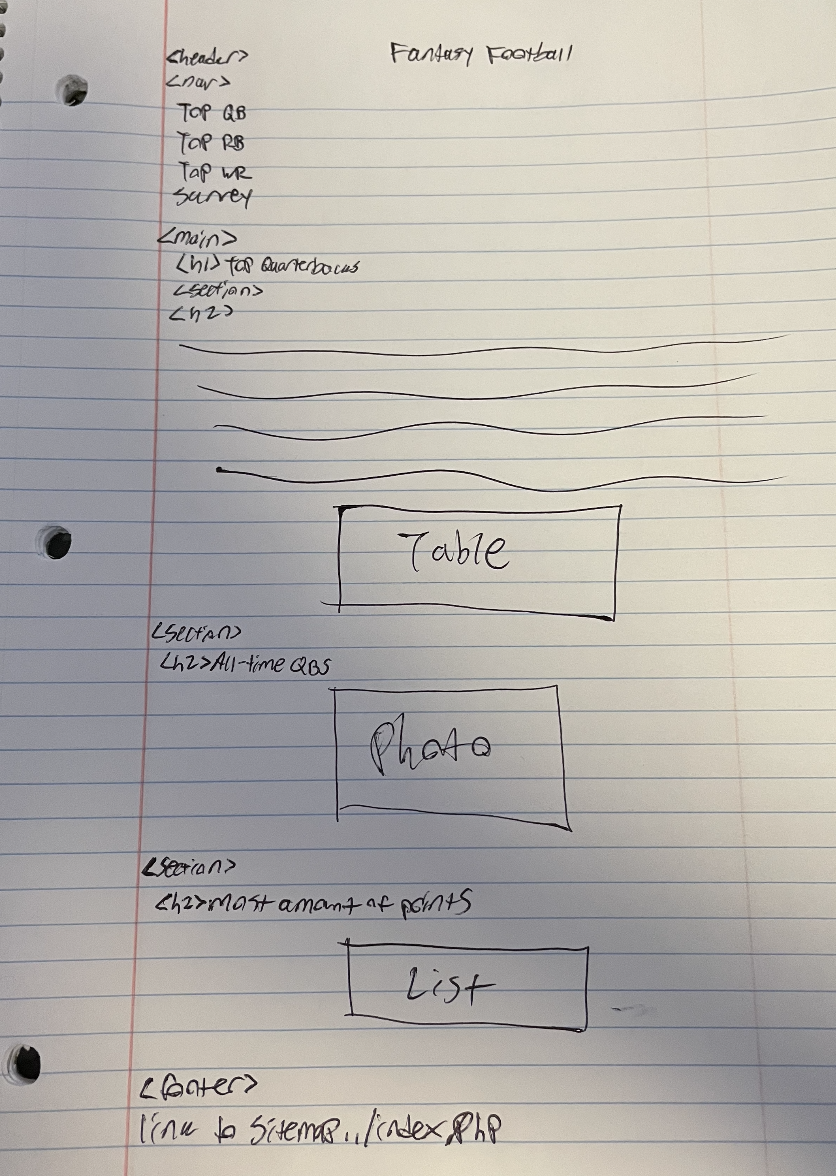 <header> Fantasy Football
<nav>
TOP QB
TOP RB
Top WR
Survey
<main>
<h1> Top Quarterbacks
<section>
<h2>
Table
<section>
<h2>All-time QBS
Photo
<section>
<h2>Most amant of points
List
<footer>
link to Sitemap../index.php